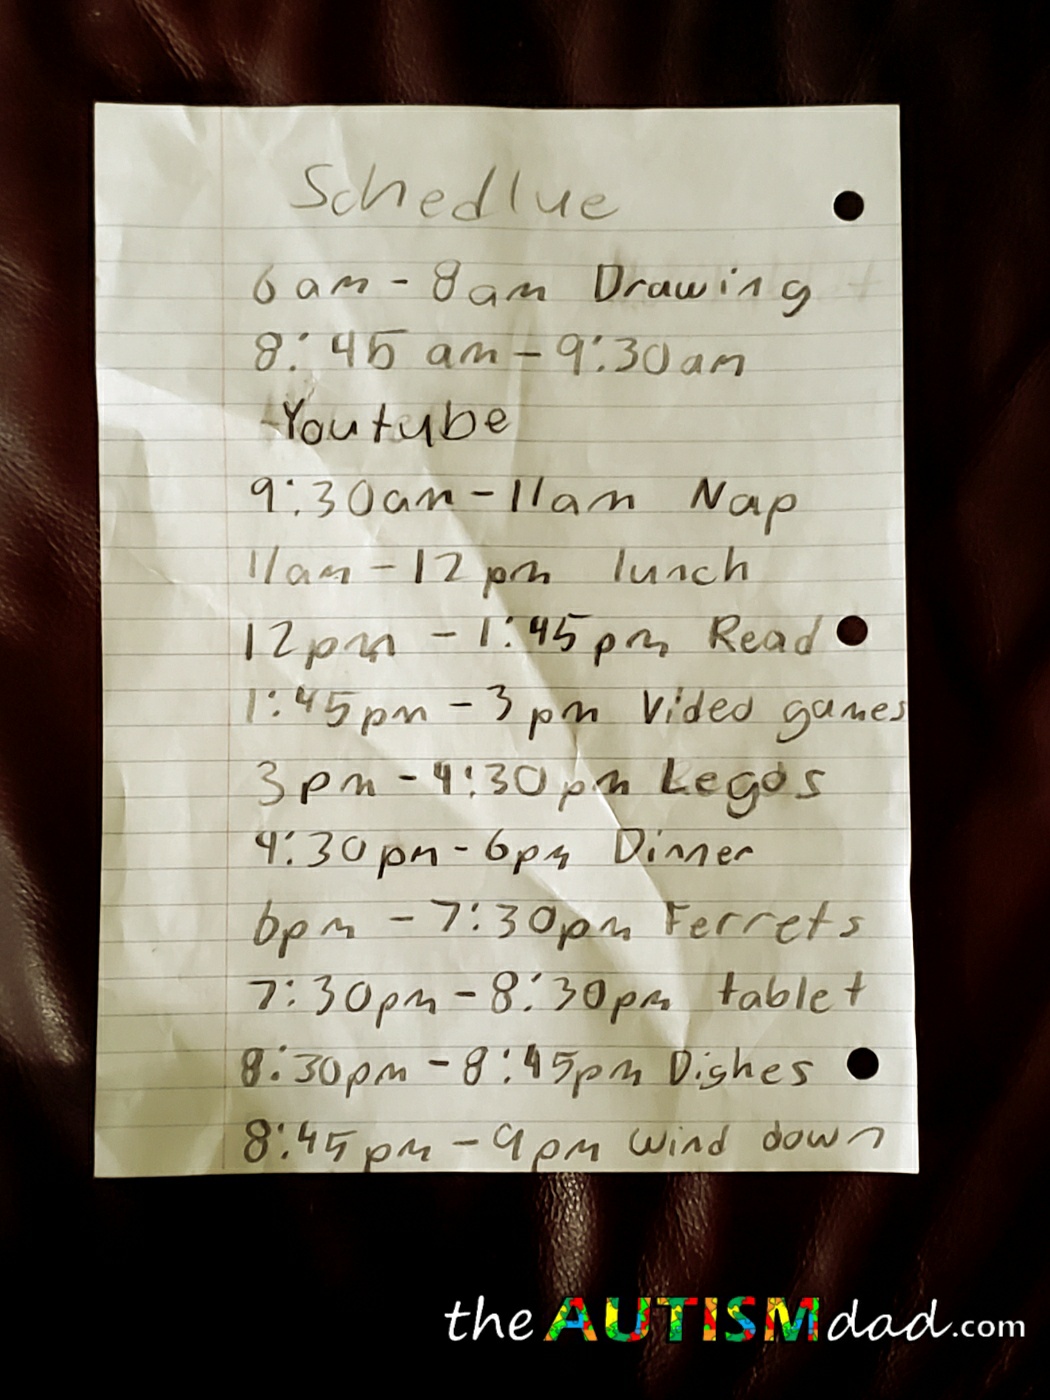 Schedlue
6am - 8am Drawing
8:45 am - 9:30am
Youtube
9:30am - 11am Nap
11am - 12pm lunch
12pm - 1:45pm Read
1:45pm - 3pm Video games
3pm - 4:30pm Legos
4:30pm - 6pm Dinner
6pm - 7:30pm Ferrets
7:30pm - 8:30pm tablet
8:30pm - 8:45pm Dishes
8:45pm - 9pm wind down
the AUTISM dad.com